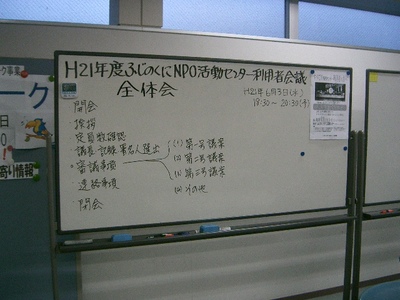 H21年度ふじのくにNPO活動センター利用者会議
全体会
H21年6月3日(水)
18:30〜20:30(予)
開会
挨拶
定員数確認
議長・記録・署名人選出
審議事項
(1) 第一号議案
(2) 第二号議案
(3) 第三号議案
(4) その他
連絡事項
閉会
ーク事業
ーク
寄り情報